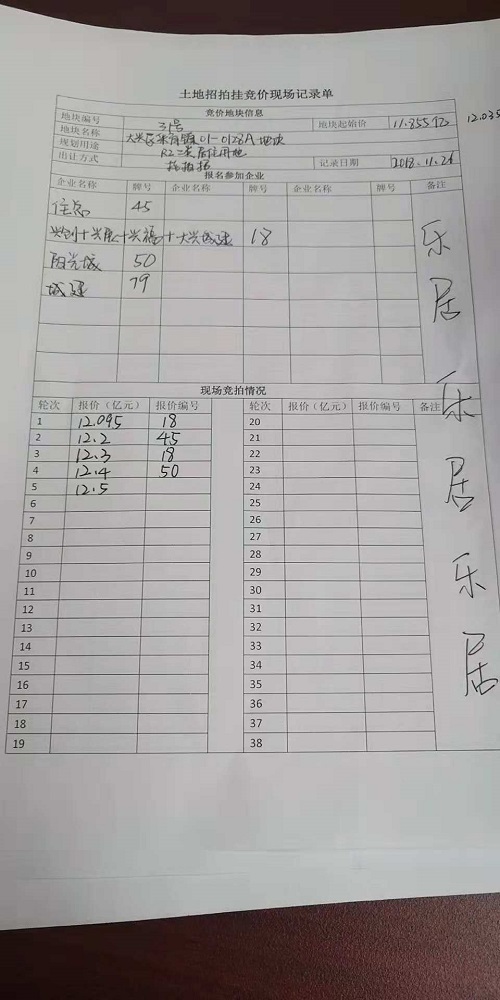 土地招拍挂竞价现场记录单
竞价地块信息
地块编号 31号 地块起始价 11.855亿 12.035
地块名称 大兴区采育镇01-0128A地块
规划用途 R2二类居住用地
出让方式 招拍挂 记录日期 2018.11.26
报名参加企业
企业名称 牌号 企业名称 牌号 企业名称 牌号 备注
住总 45
兴创+兴展+兴福+大兴城建 18
阳光城 50
城建 79
现场竞拍情况
轮次 报价（亿元） 报价编号 轮次 报价（亿元） 报价编号 备注
1 12.095 18 20
2 12.2 45 21
3 12.3 18 22
4 12.4 50 23
5 12.5 24
6 25
7 26
8 27
9 28
10 29
11 30
12 31
13 32
14 33
15 34
16 35
17 36
18 37
19 38
乐居乐居乐居